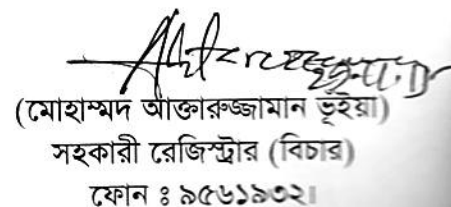 (মোহাম্মদ আক্তারুজ্জামান ভূইয়া)
সহকারী রেজিস্ট্রার (বিচার)
ফোন ঃ ৯৫৬১৯৩২।